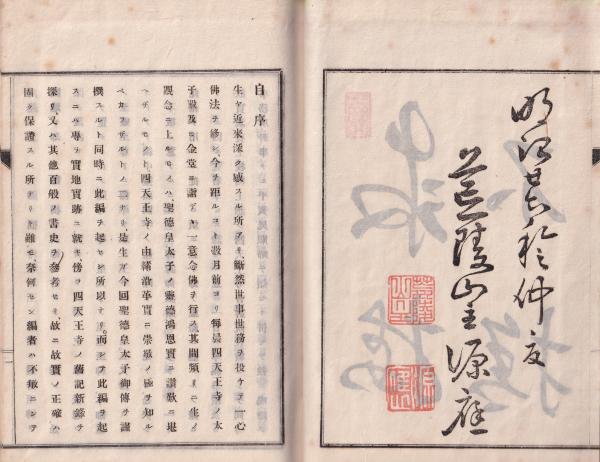 明治廿六秋於仲夏
荒陵山主源應
自序
生ヤ近來深ク感スル所アリ斷然世事世務ヲ投ケテ一心
佛法ヲ修シ今ヲ距ルコト數月前ヨリ每晨四天王寺ノ太
子殿及ヒ金堂ニ詣テ一意念佛ヲ行ス其間頻リニ生ノ
觀念ニ上ルモノハ聖德皇太子ノ靈德鴻恩實ニ讃歎ニ堪
ヘサルモノト四天王寺ノ由緒沿革實ニ崇敬ノ極ヲ知ル
ヘカラサルトノニアリ是生カ今回聖德皇太子御傳ヲ謹
撰スルト同時ニ此編ヲ起セシ所以ナリ而シテ此編ヲ起
スニハ專ラ實地實跡ニ就キ傍ラ四天王寺ノ舊記新錄ヲ
探リ又ハ其他百般ノ書史ヲ參考セリ故ニ故實ノ正確ハ
固ク保證スル所ナリト雖モ奈何セン編者ハ不敏ニシテ